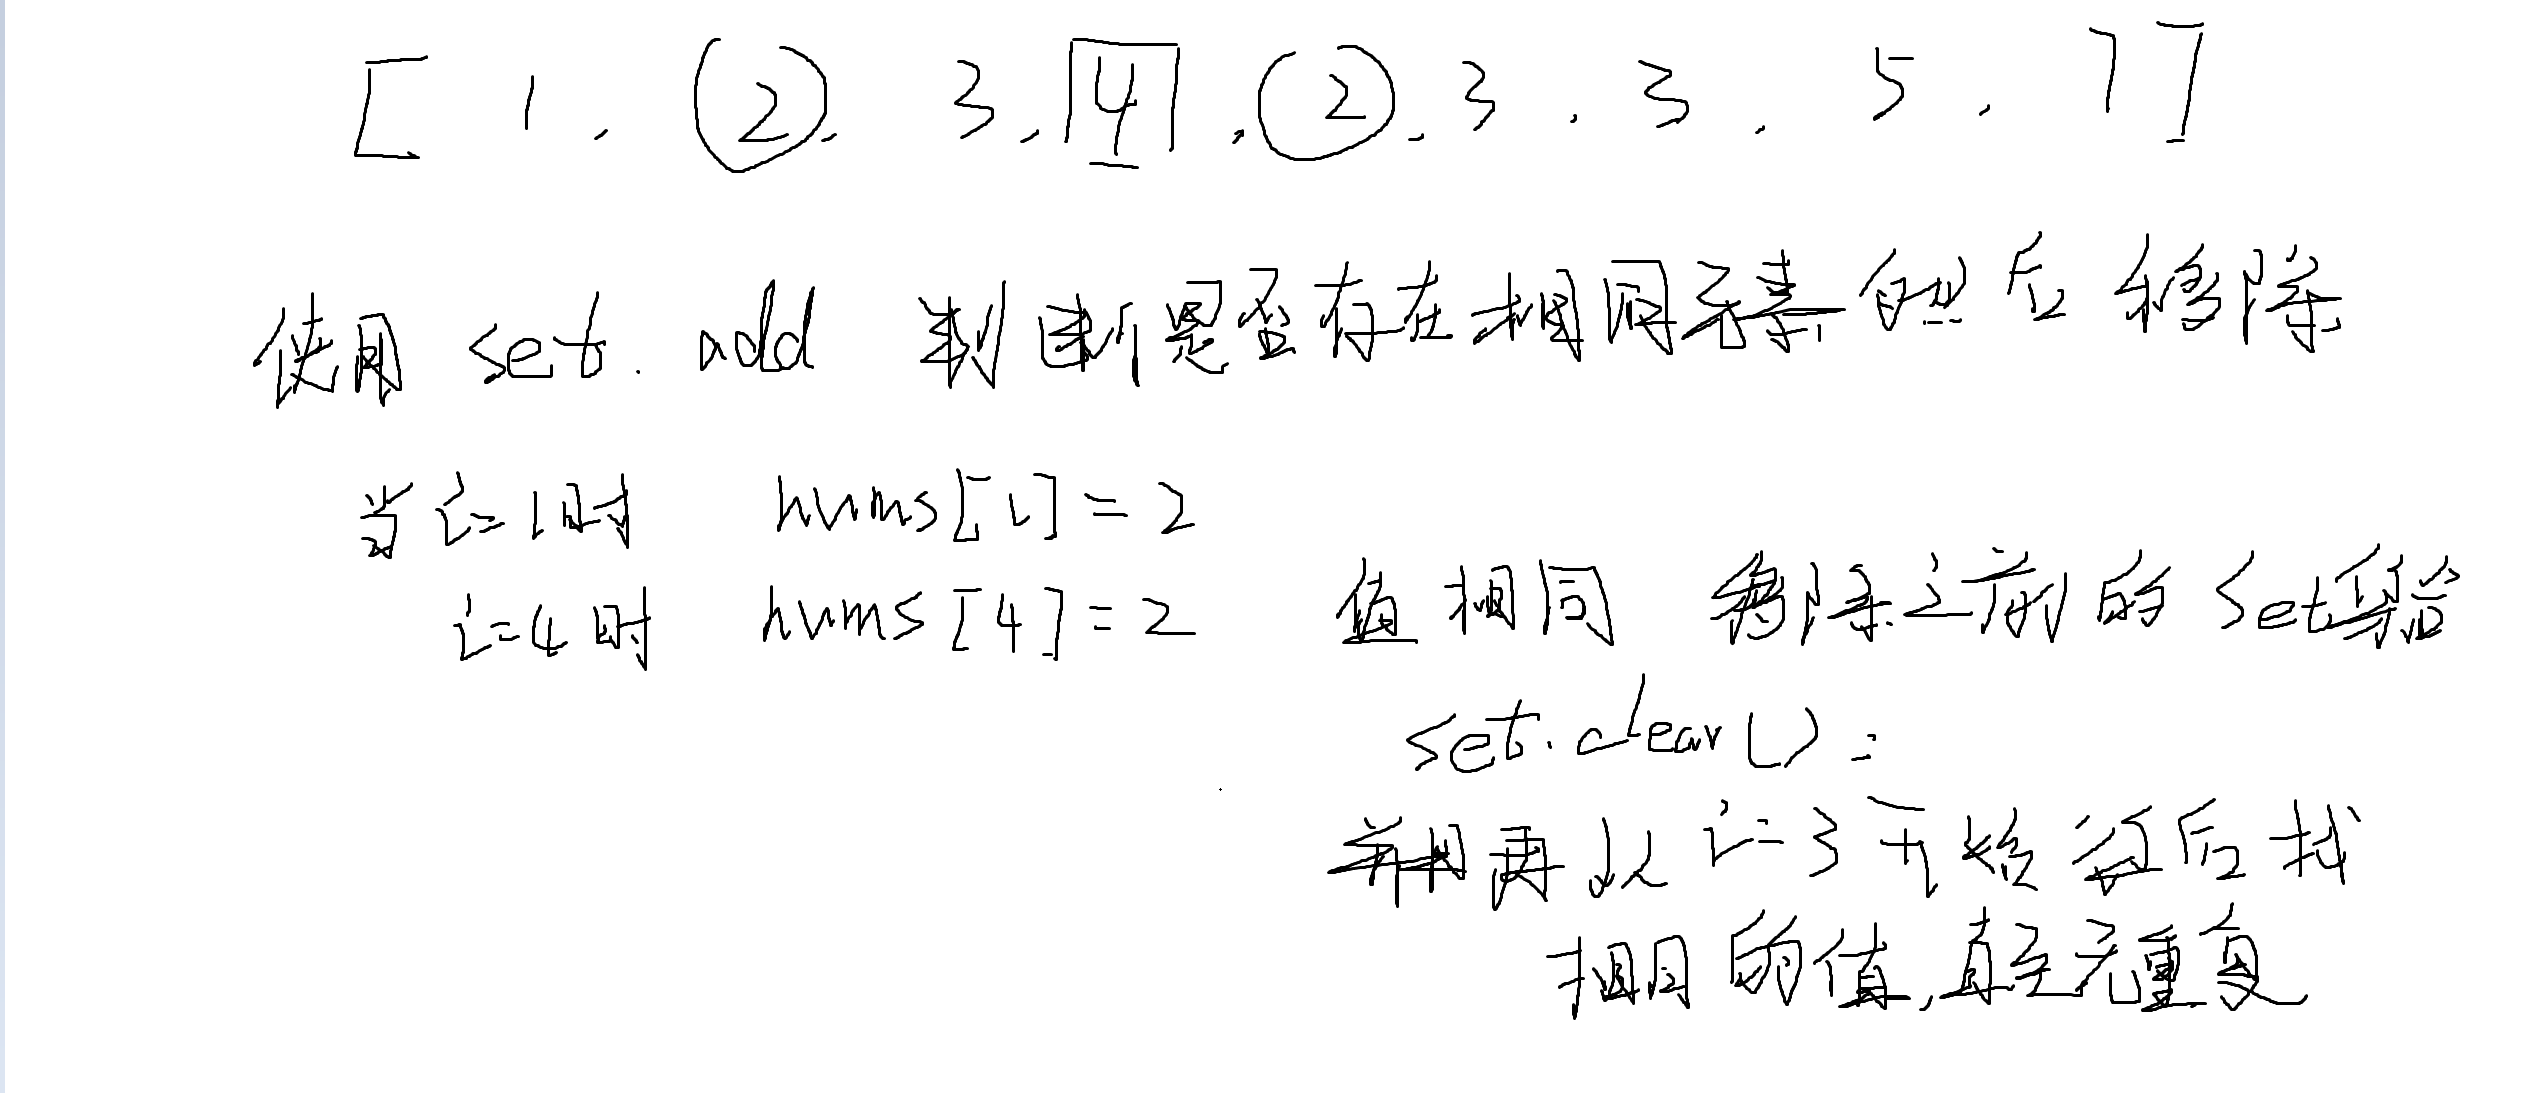 [ 1, 2, 3, 4, 2, 3, 3, 5, 7 ]
使用 set. add 判断是否存在相同元素 然后移除
当 i=1时 nums[1]=2
i=4时 nums[4]=2
值相同 移除之前的 set集合
set.clear();
并且再从 i=3开始往后找
相同的值,直至无重复